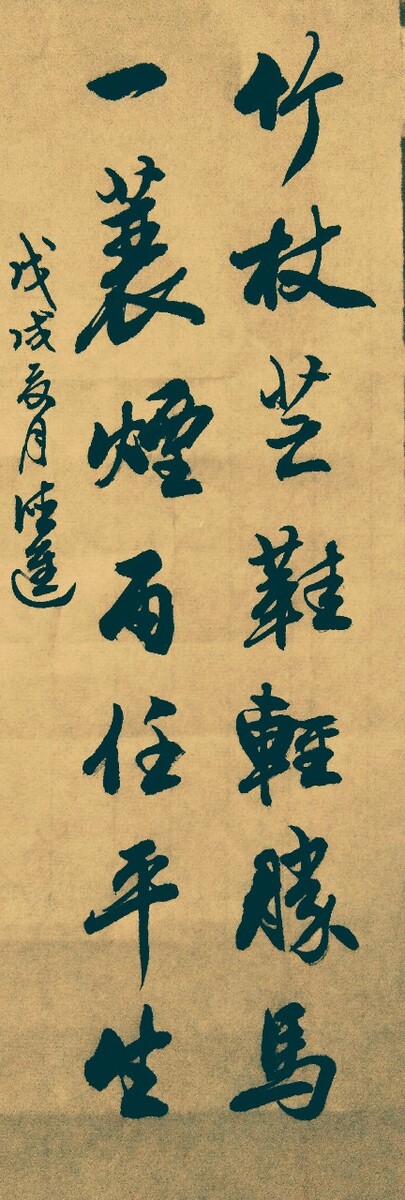 竹杖芒鞋輕勝馬
一蓑煙雨任平生
戊戌夏月佳進